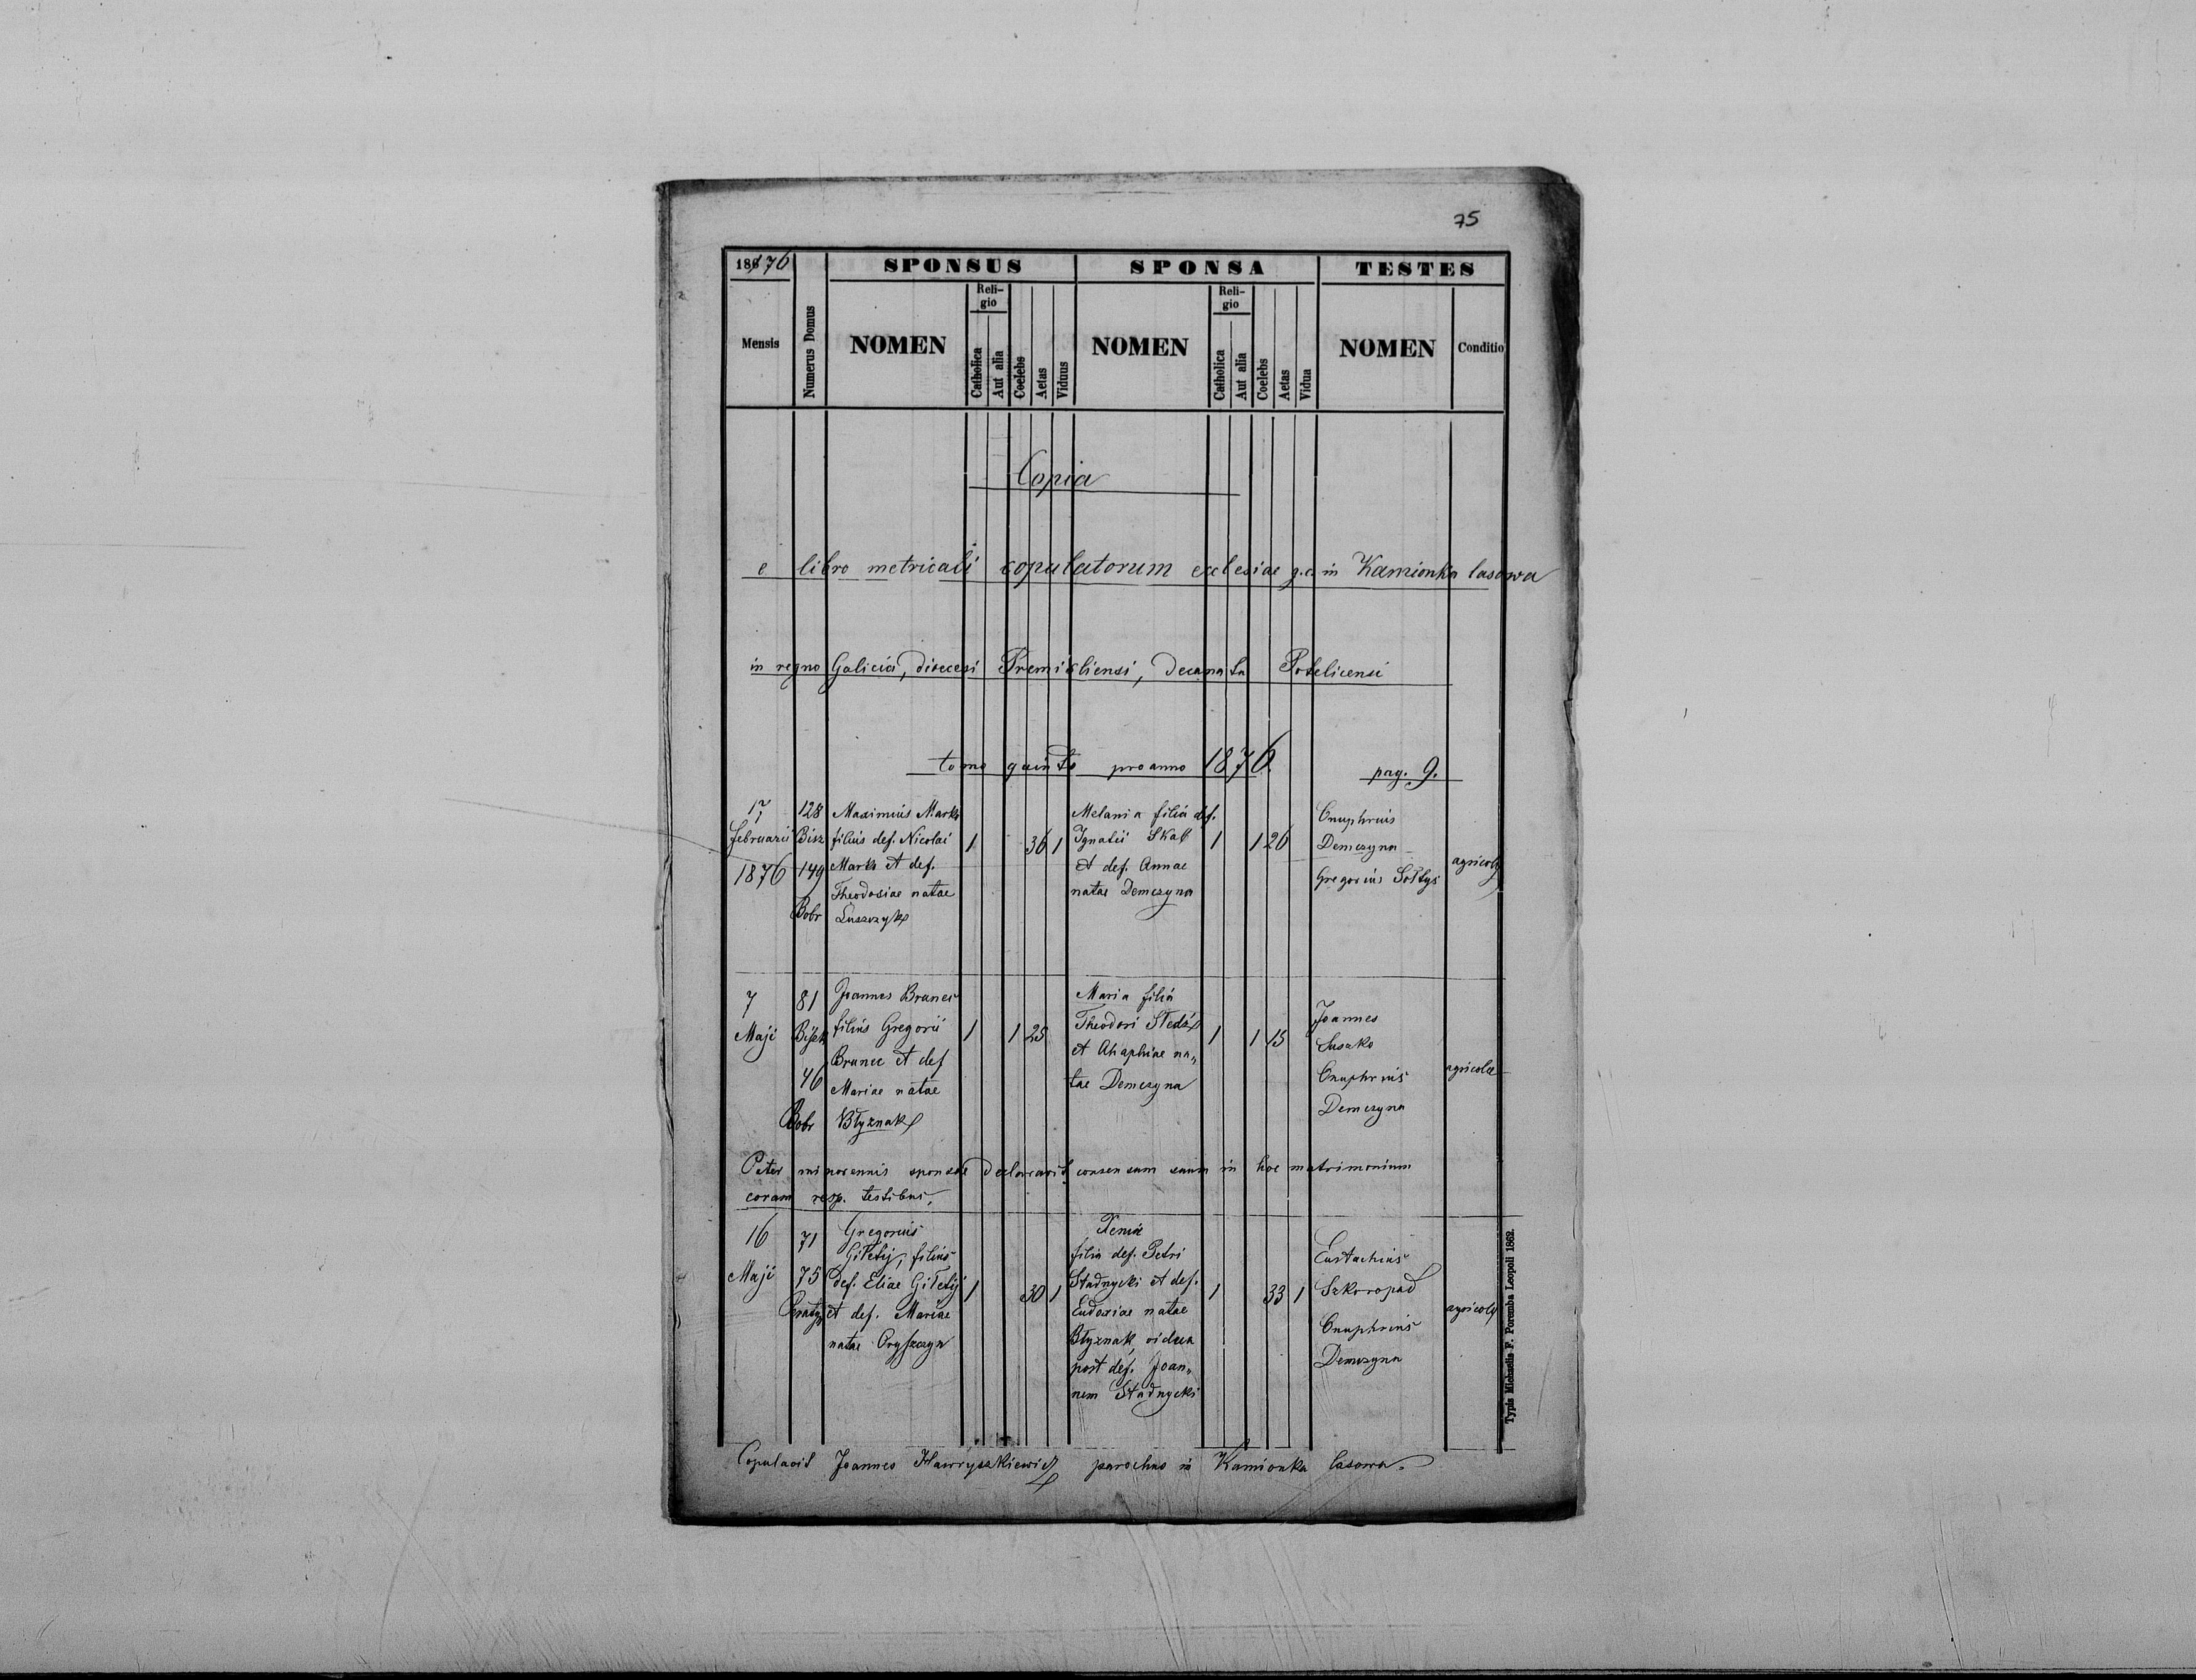 75
1876
SPONSUS
SPONSA
TESTES
Mensis
Numerus Domus
NOMEN
Religio
Catholica
Aut alia
Coelebs
Aetas
Viduus
NOMEN
Religio
Catholica
Aut alia
Coelebs
Aetas
Vidua
NOMEN
Conditio
Copia
e libro metricali copulatorum ecclesiae g.c. in Kamionka lasowa
in regno Galicia, dioecesi Premisliensi, Decanatu Potelicensi
tomo quinto pro anno 1876. pag. 9.
17
Februarii
1876
128
Bisz
149
Bobr
Maximus Marko
filius def. Nicolai
Marko et def.
Theodosiae natae
Łuszczyk
1 36 1
Melania filia def.
Ignatii Skab
et def. Annae
natae Demczyna
1 1 26
Onuphrius
Demczyna
Gregorius Sołtys
agricolae
7
Maji
81
Biszk
46
Bobr
Joannes Brunec
filius Gregorii
Brunec et def
Mariae natae
Błyznak
1 1 25
Maria filia
Theodori Sledź
et Ahaphiae na„
tae Demczyna
1 1 15
Joannes
Suszko
Onuphrius
Demczyna
agricolae
Pater minorennis sponsae declaravit consensum suum in hoc matrimonium
coram resp. testibus.
16
Maji
71
75
Gregorius
Giłetij, filius
def. Eliae Giłetij
et def. Mariae
natae Oryszczyn
1 30 1
Xenia
filia def. Petri
Stadnycki et def.
Eudoxiae natae
Błyznak, vidua
post def. Joan„
nem Stadnycki
1 33 1
Eustachius
Szkoropad
Onuphrius
Demczyna
agricolae
Copulavit Joannes Hawryszkiewicz parochus in Kamionka lasowa.
Typis Michaelis F. Poremba Leopoli 1862.